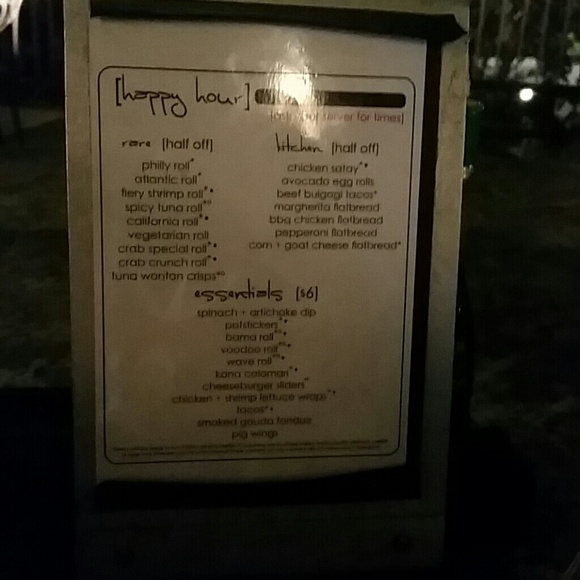 [happy hour]
[ask your server for times]
rare [half off]
philly roll*
atlantic roll*
fiery shrimp roll*•
spicy tuna roll*
california roll*•
vegetarian roll
crab special roll*•
crab crunch roll*•
tuna wonton crisps*
kitchen [half off]
chicken satay*•
avocado egg rolls
beef bulgogi tacos*
margherita flatbread
bbq chicken flatbread
pepperoni flatbread
corn + goat cheese flatbread*
essentials [$6]
spinach + artichoke dip
potstickers*•
bama roll*•
voodoo roll*•
wave roll*•
kona calamari*•
cheeseburger sliders*
chicken + shrimp lettuce wraps*•
tacos*•
smoked gouda fondue
pig wings